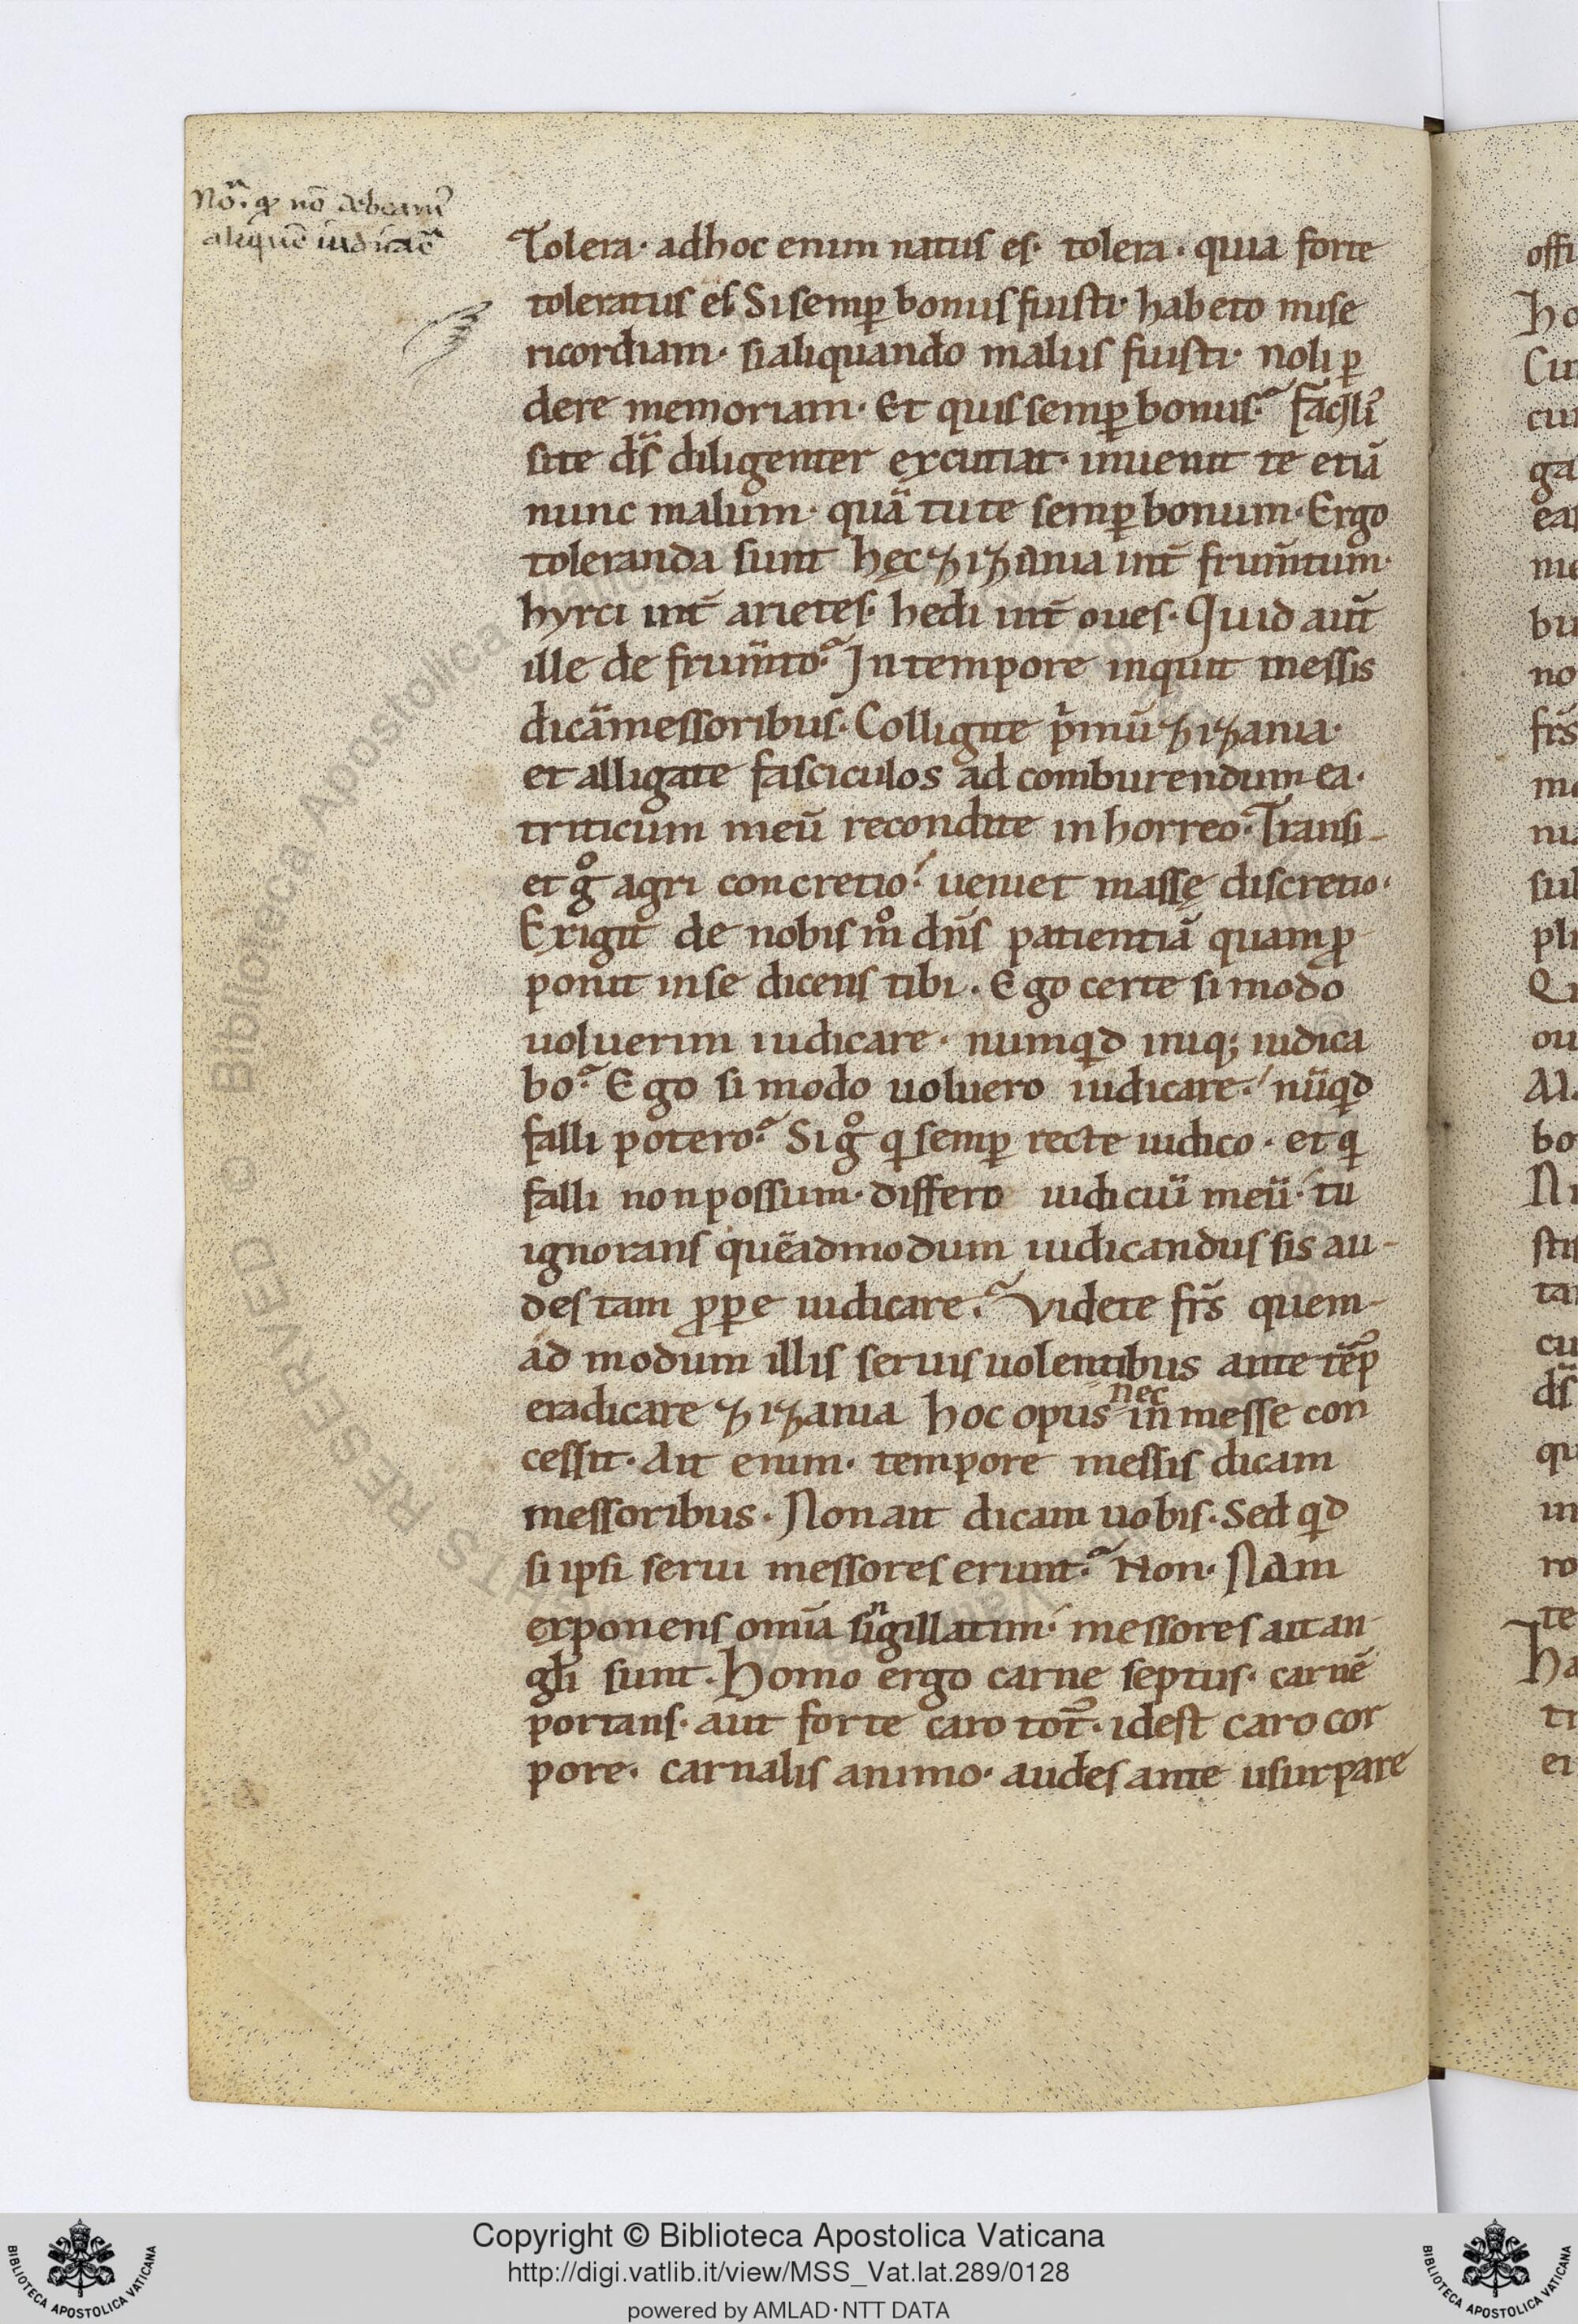 Nōᵃ. ꝙ nō debeamꝰ
aliquē iudicaͤ
Tolera· adhoc enim natus es· tolera· quia forte
toleratus es Si semꝑ bonus fuisti· habeto mise
ricordiam· si aliquando malus fuisti· noli ꝑ
dere memoriam· Et quis semꝑ bonus? Facilꝰ
si te ds̄ diligenter excutiat· inuenit te etiā
nunc malum· quā tu te semꝑ bonum· Ergo
toleranda sunt hęc zizania int̄ frum̄tum·
hyrci int̄ arietes· hedi int̄ oues· Quid aut̄
ille de frum̄to? In tempore inquit messis
dicā messoribus· Colligite p̄mū zizania·
et alligate fasciculos ad comburendum ea·
triticum meū recondite in horreo· Transi-
et gͦ agri concretio· ueniet massę discretio·
Exigit de nobis mͦ dn̄s patientiā quam ꝓ
ponit in se dicens tibi· Ego certe si modo
uoluerim iudicare· numqͥd iniq; iudica
bo? Ego si modo uoluero iudicare· nūqͥd
falli potero? Si gͦ qͥ semꝑ recte iudico· et qͥ
falli non possum· differo iudiciū meū· tu
ignorans quēadmodum iudicandus sis au-
des tam ꝓꝑe iudicare? Videte fr̄s quem-
ad modum illis seruis uolentibus ante tēpꝰ
eradicare zizania hoc opus nec in messe con
cessit· Ait enim· tempore messis dicam
messoribus· Non ait dicam uobis· Sed qͥd
si ipsi serui messores erunt? Non· Nam
exponens omīa singillatim· messores ait an
gl̄i sunt· Homo ergo carne septus· carnē
portans· aut forte caro totꝰ· id est caro cor
pore· carnalis animo· audes ante usurpare
Copyright © Biblioteca Apostolica Vaticana
http://digi.vatlib.it/view/MSS_Vat.lat.289/0128
powered by AMLAD·NTT DATA